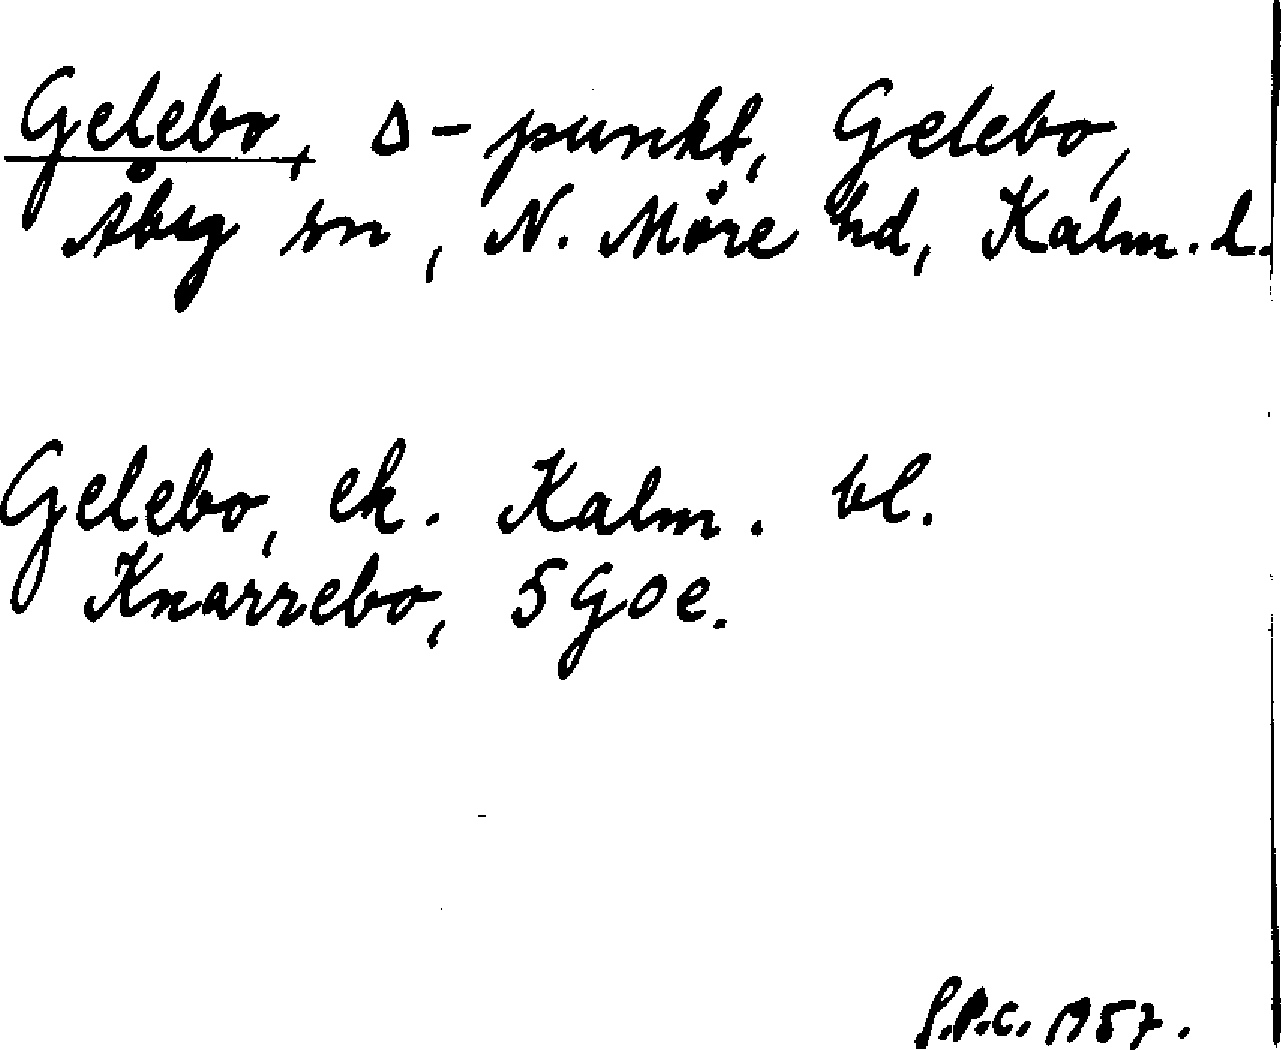 Gelebo, Δ-punkt, Gelebo,
Åby sn, N. Möre hd, Kalm. l.
Gelebo, ek. Kalm. bl.
Knarrebo, 5G0e.
S.P.C. 1957.